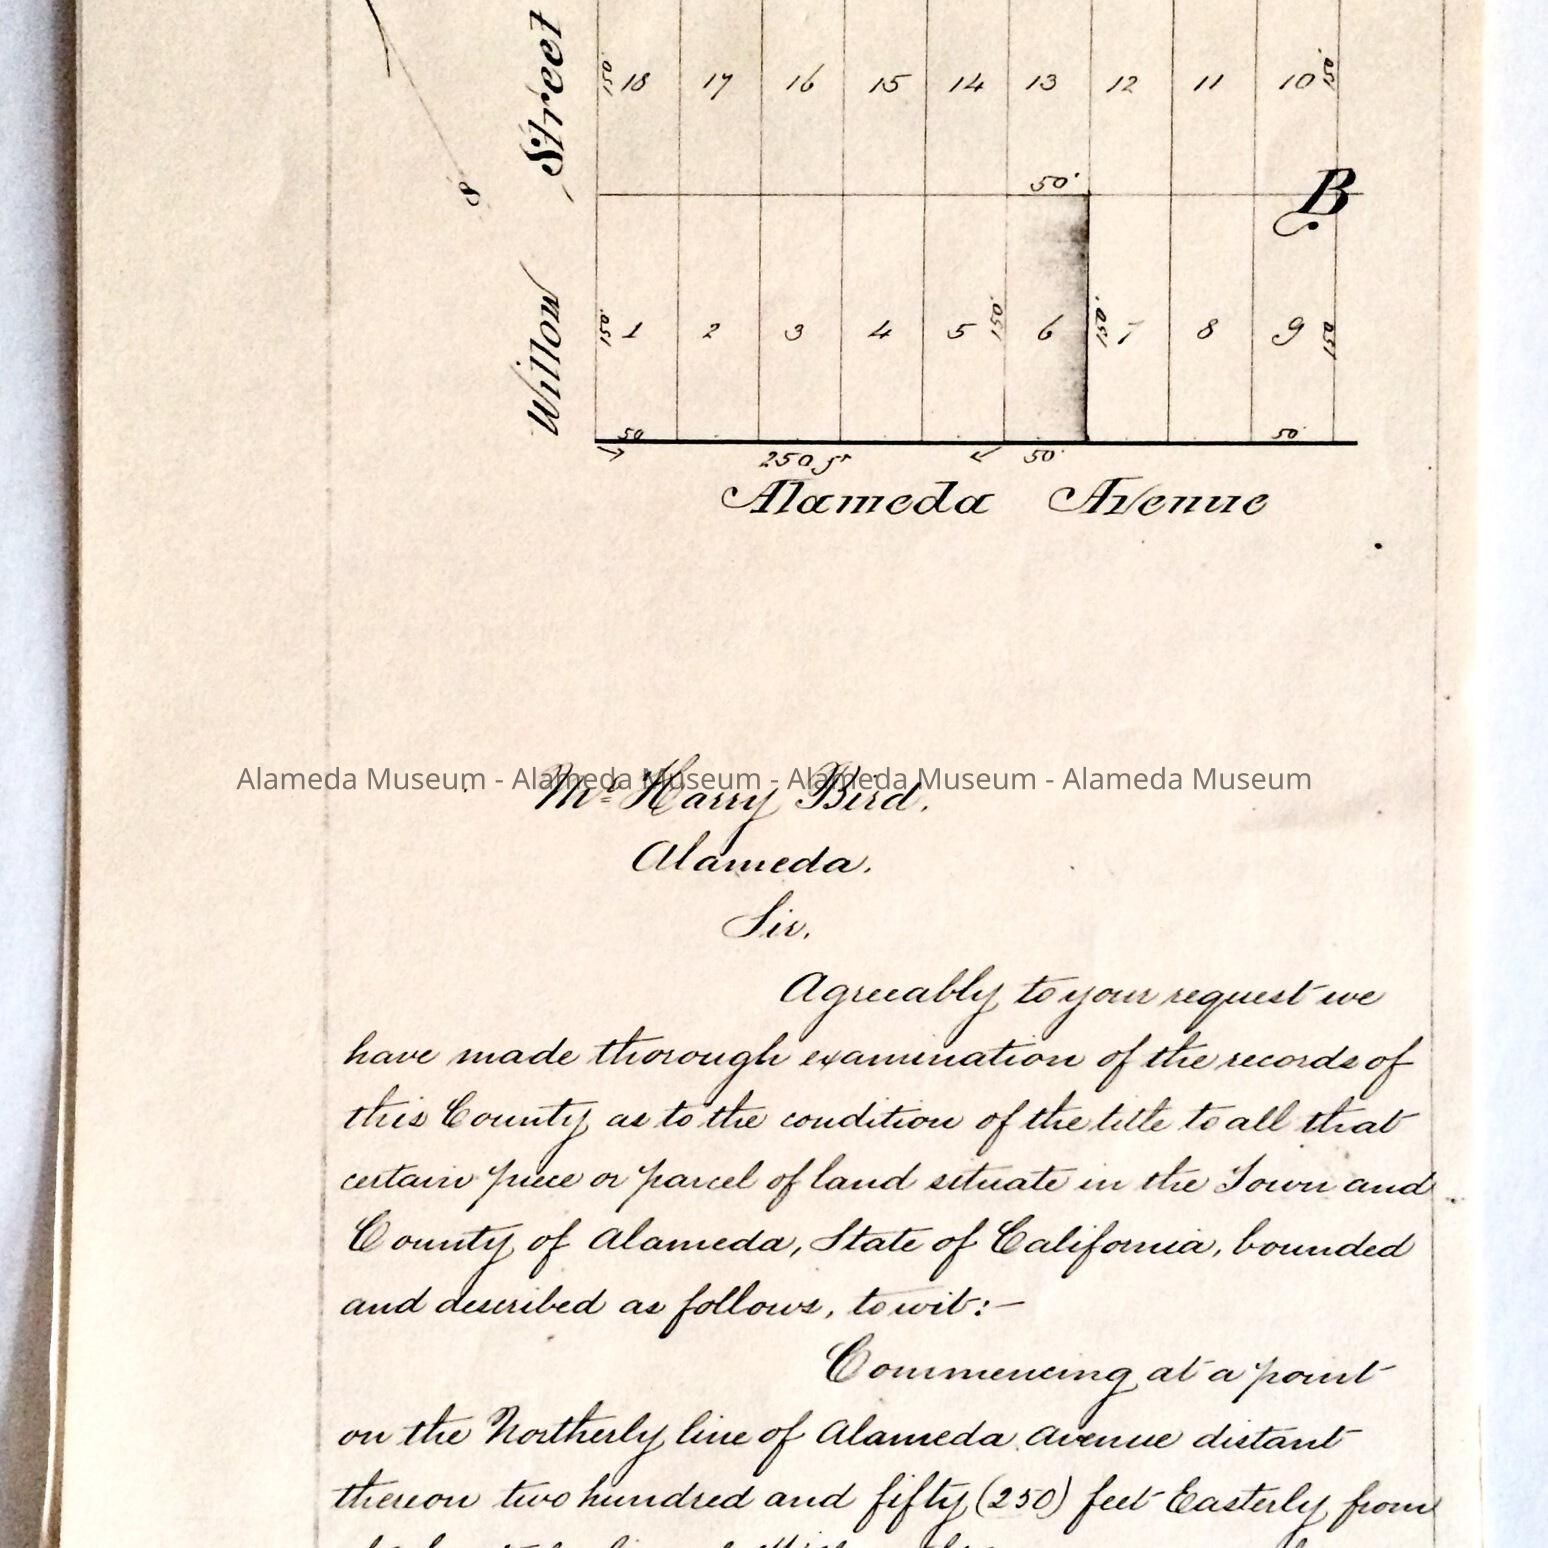 Willow Street
150. 18 17 16 15 14 13 12 11 10 150.
8
50'
B
150. 1 2 3 4 5 150. 6 150. 7 8 9 150
50 50'
250 ft 50'
Alameda Avenue
Alameda Museum - Alameda Museum - Alameda Museum - Alameda Museum
Mr Harry Bird.
Alameda.
Sir.
Agreeably to your request we
have made thorough examination of the records of
this County as to the condition of the title to all that
certain piece or parcel of land situate in the Town and
County of Alameda, State of California, bounded
and described as follows, to wit:—
Commencing at a point
on the Northerly line of Alameda Avenue distant
thereon two hundred and fifty (250) feet Easterly from